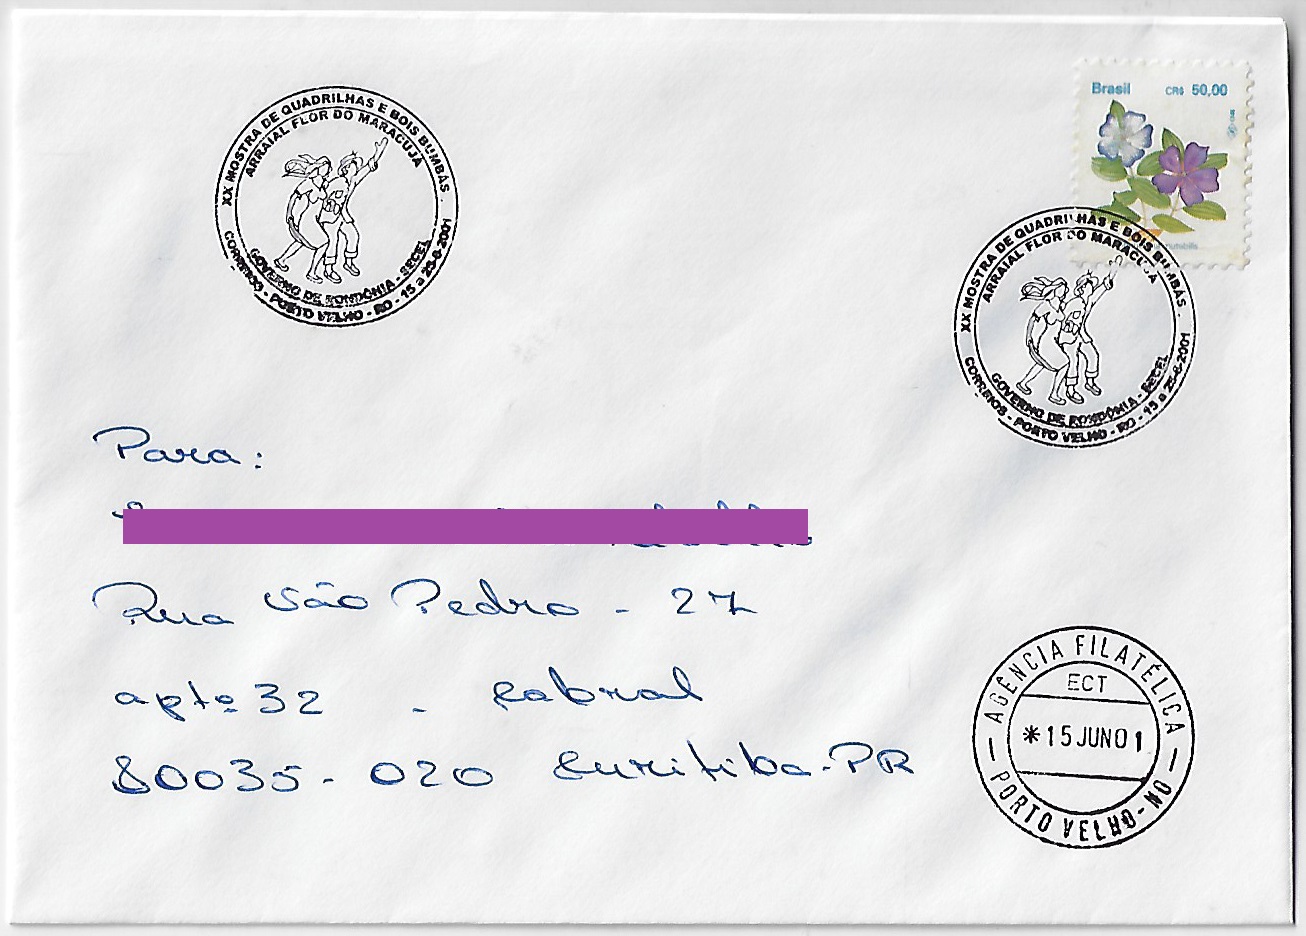 XX MOSTRA DE QUADRILHAS E BOIS BUMBÁS.
ARRAIAL FLOR DO MARACUJÁ
GOVERNO DE RONDÔNIA - SECEL
CORREIOS - PORTO VELHO - RO - 15 a 25-6-2001
Brasil CR$ 50,00
XX MOSTRA DE QUADRILHAS E BOIS BUMBÁS.
ARRAIAL FLOR DO MARACUJÁ
GOVERNO DE RONDÔNIA - SECEL
CORREIOS - PORTO VELHO - RO - 15 a 25-6-2001
mutabilis
Para:
Rua São Pedro - 27
apto 32 - Cabral
80035-020 Curitiba-PR
AGÊNCIA FILATÉLICA
ECT
*15 JUN 01
PORTO VELHO-